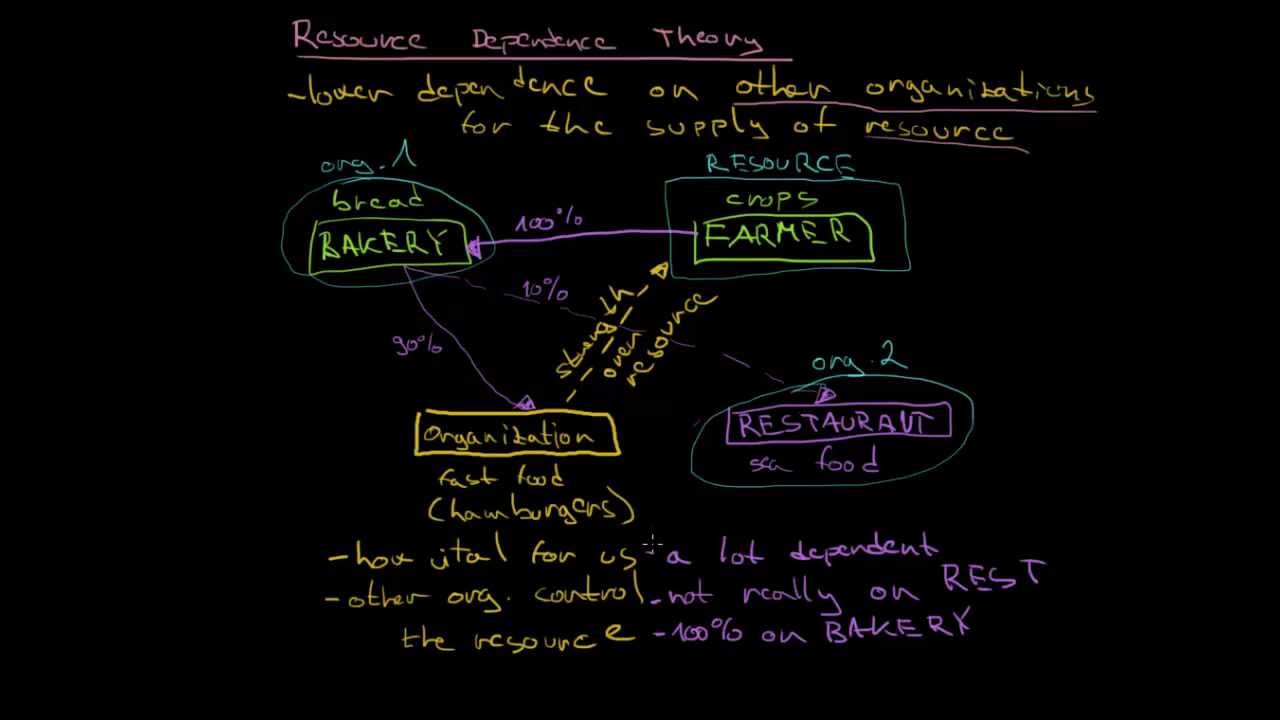 Resource Dependence Theory
-lower dependence on other organizations
for the supply of resource
org. 1
RESOURCE
bread
crops
BAKERY
100%
FARMER
10%
90%
strength
over
resource
org. 2
Organization
RESTAURANT
fast food
sea food
(hamburgers)
-how vital for us
-a lot dependent
-other org. control
-not really on REST
the resource
-100% on BAKERY